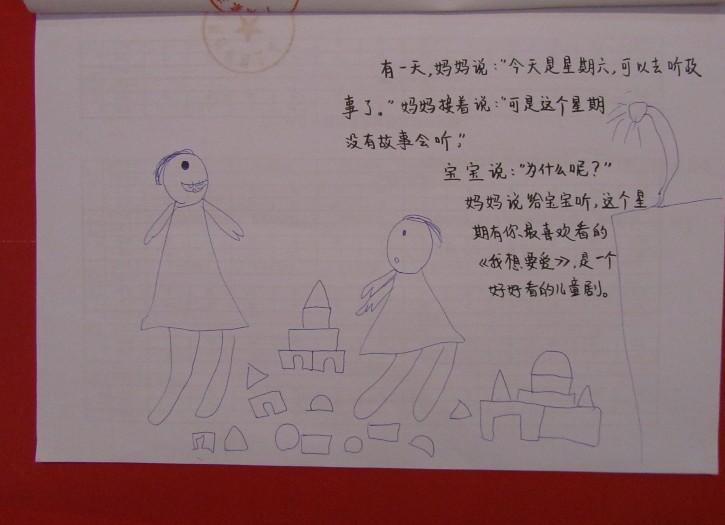 有一天,妈妈说:"今天是星期六,可以去听故
事了。"妈妈接着说:"可是这个星期
没有故事会听。"
宝宝说:"为什么呢?"
妈妈说给宝宝听,这个星
期有你最喜欢看的
《我想要爱》,是一个
好好看的儿童剧。